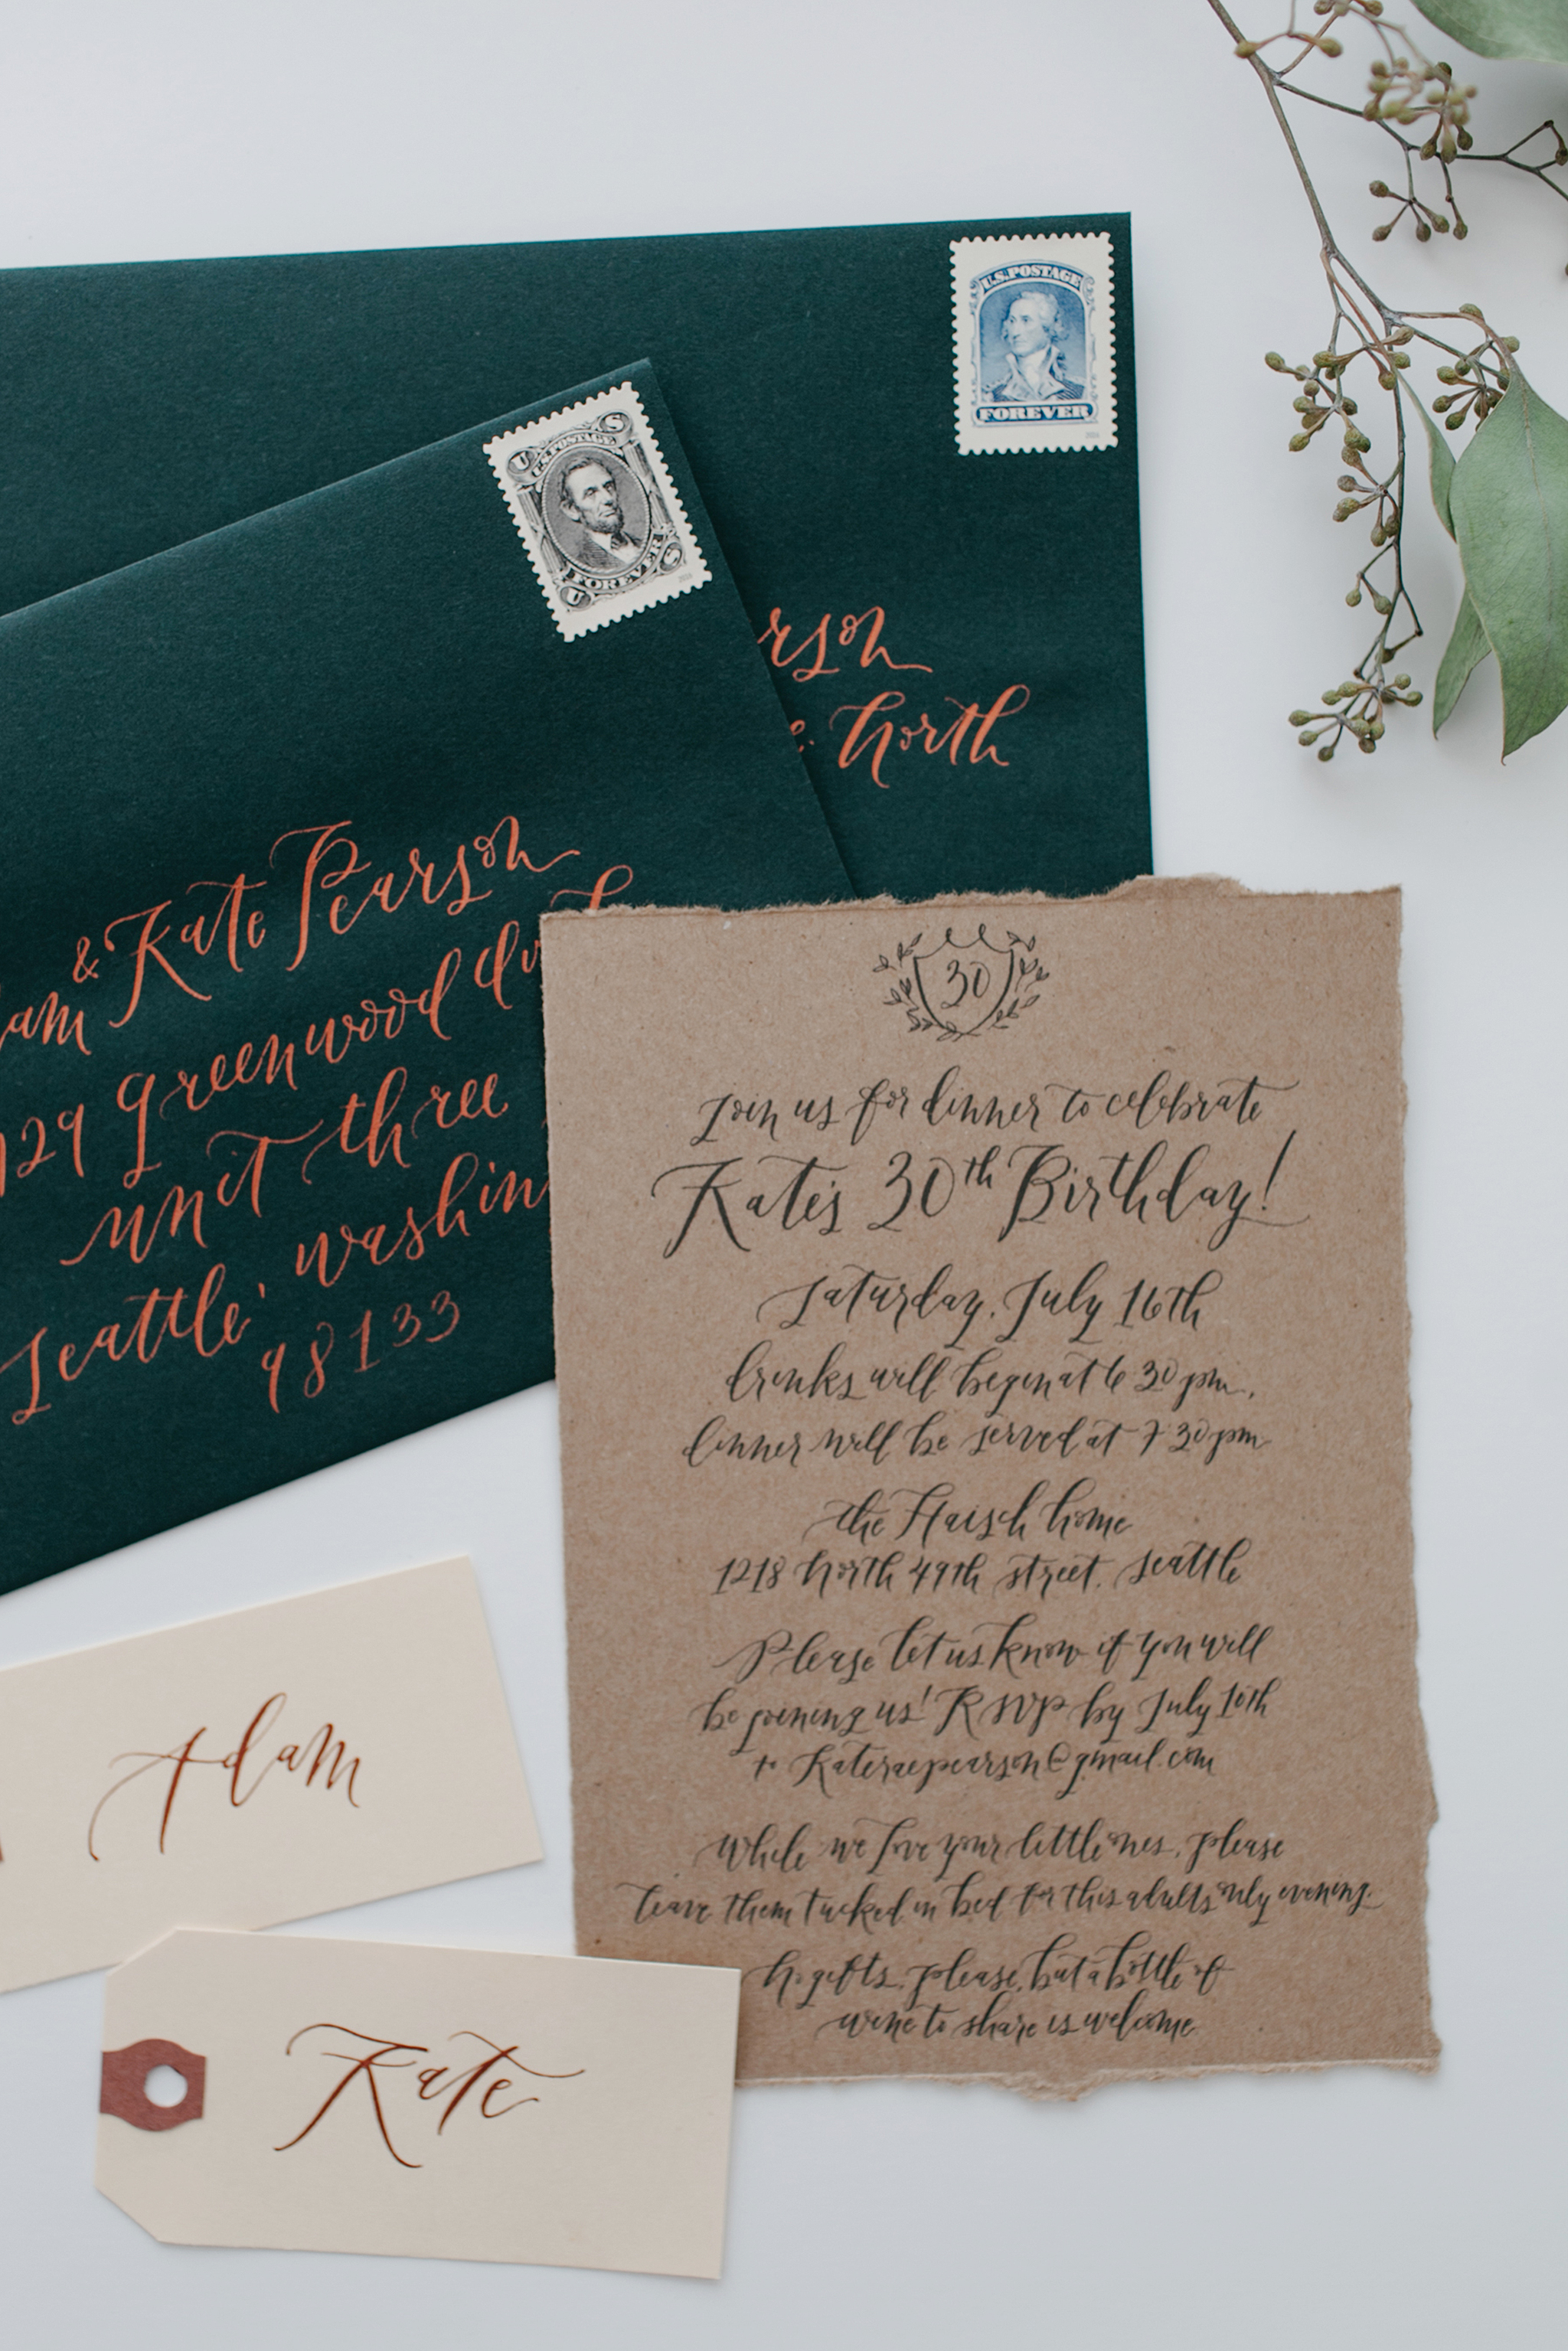 U.S. POSTAGE
FOREVER
U S
U.S. POSTAGE
FOREVER
U S
rson
e. North
& Kate Pearson
am
129 Greenwood
unit three
Seattle, washin
98133
30
Join us for dinner to celebrate
Kate's 30th Birthday!
Saturday, July 16th
drinks will begin at 6 30 pm,
dinner will be served at 7 30 pm
the Haisch home
1218 North 49th street, Seattle
Please let us know if you will
be joining us! RSVP by July 10th
to Kateraepearson@gmail.com
While we love your little ones, please
leave them tucked in bed for this adults only evening.
No gifts, please, but a bottle of
wine to share is welcome
Adam
Kate